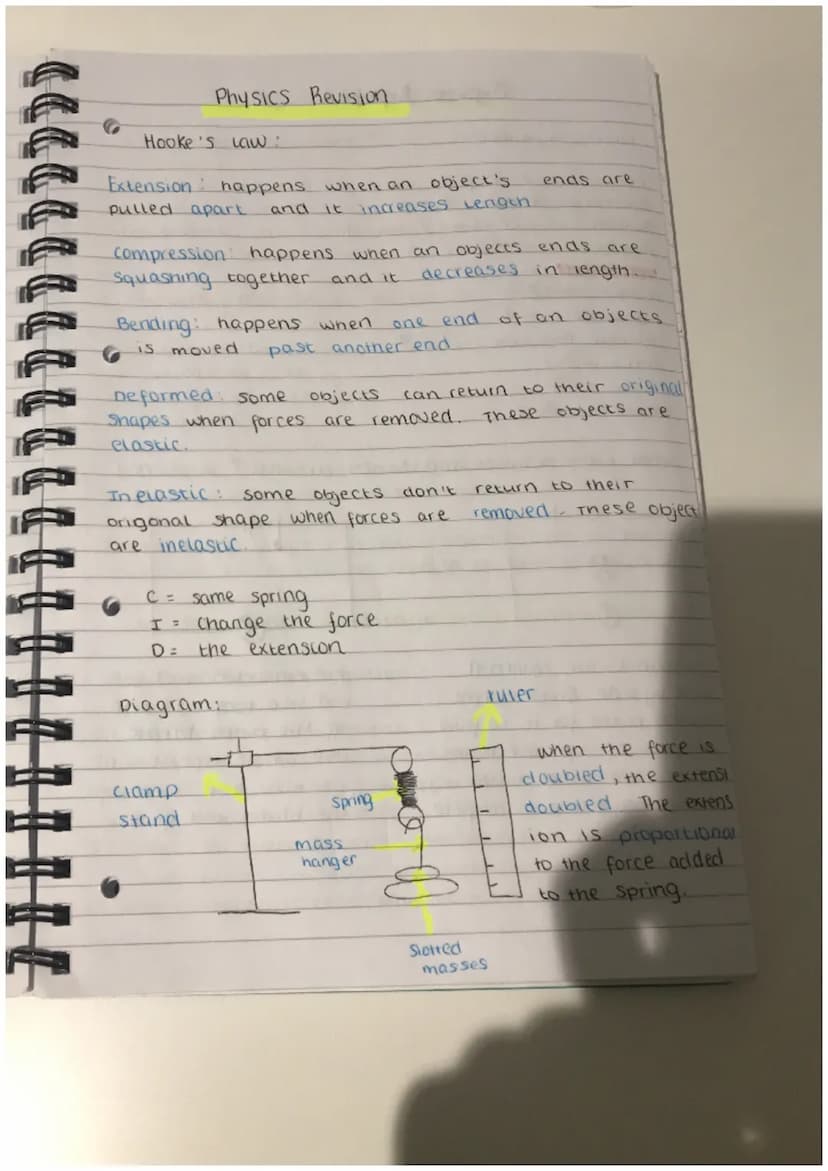 Physics Revision
Hooke's Law:
Extension: happens when an object's ends are
pulled apart and it increases length
compression: happens when an objects ends are
squashing together and it decreases in length.
Bending: happens when one end of an objects
is moved past another end
Deformed: some objects can return to their original
shapes when forces are removed. These objects are
elastic.
Inelastic: some objects don't return to their
origonal shape when forces are removed. These object
are inelastic.
C = same spring
I = change the force
D = the extension
Diagram:
ruler
clamp
stand
spring
mass
hanger
slotted
masses
when the force is
doubled, the extensi
doubled. The extens
ion is proportional
to the force added
to the spring.